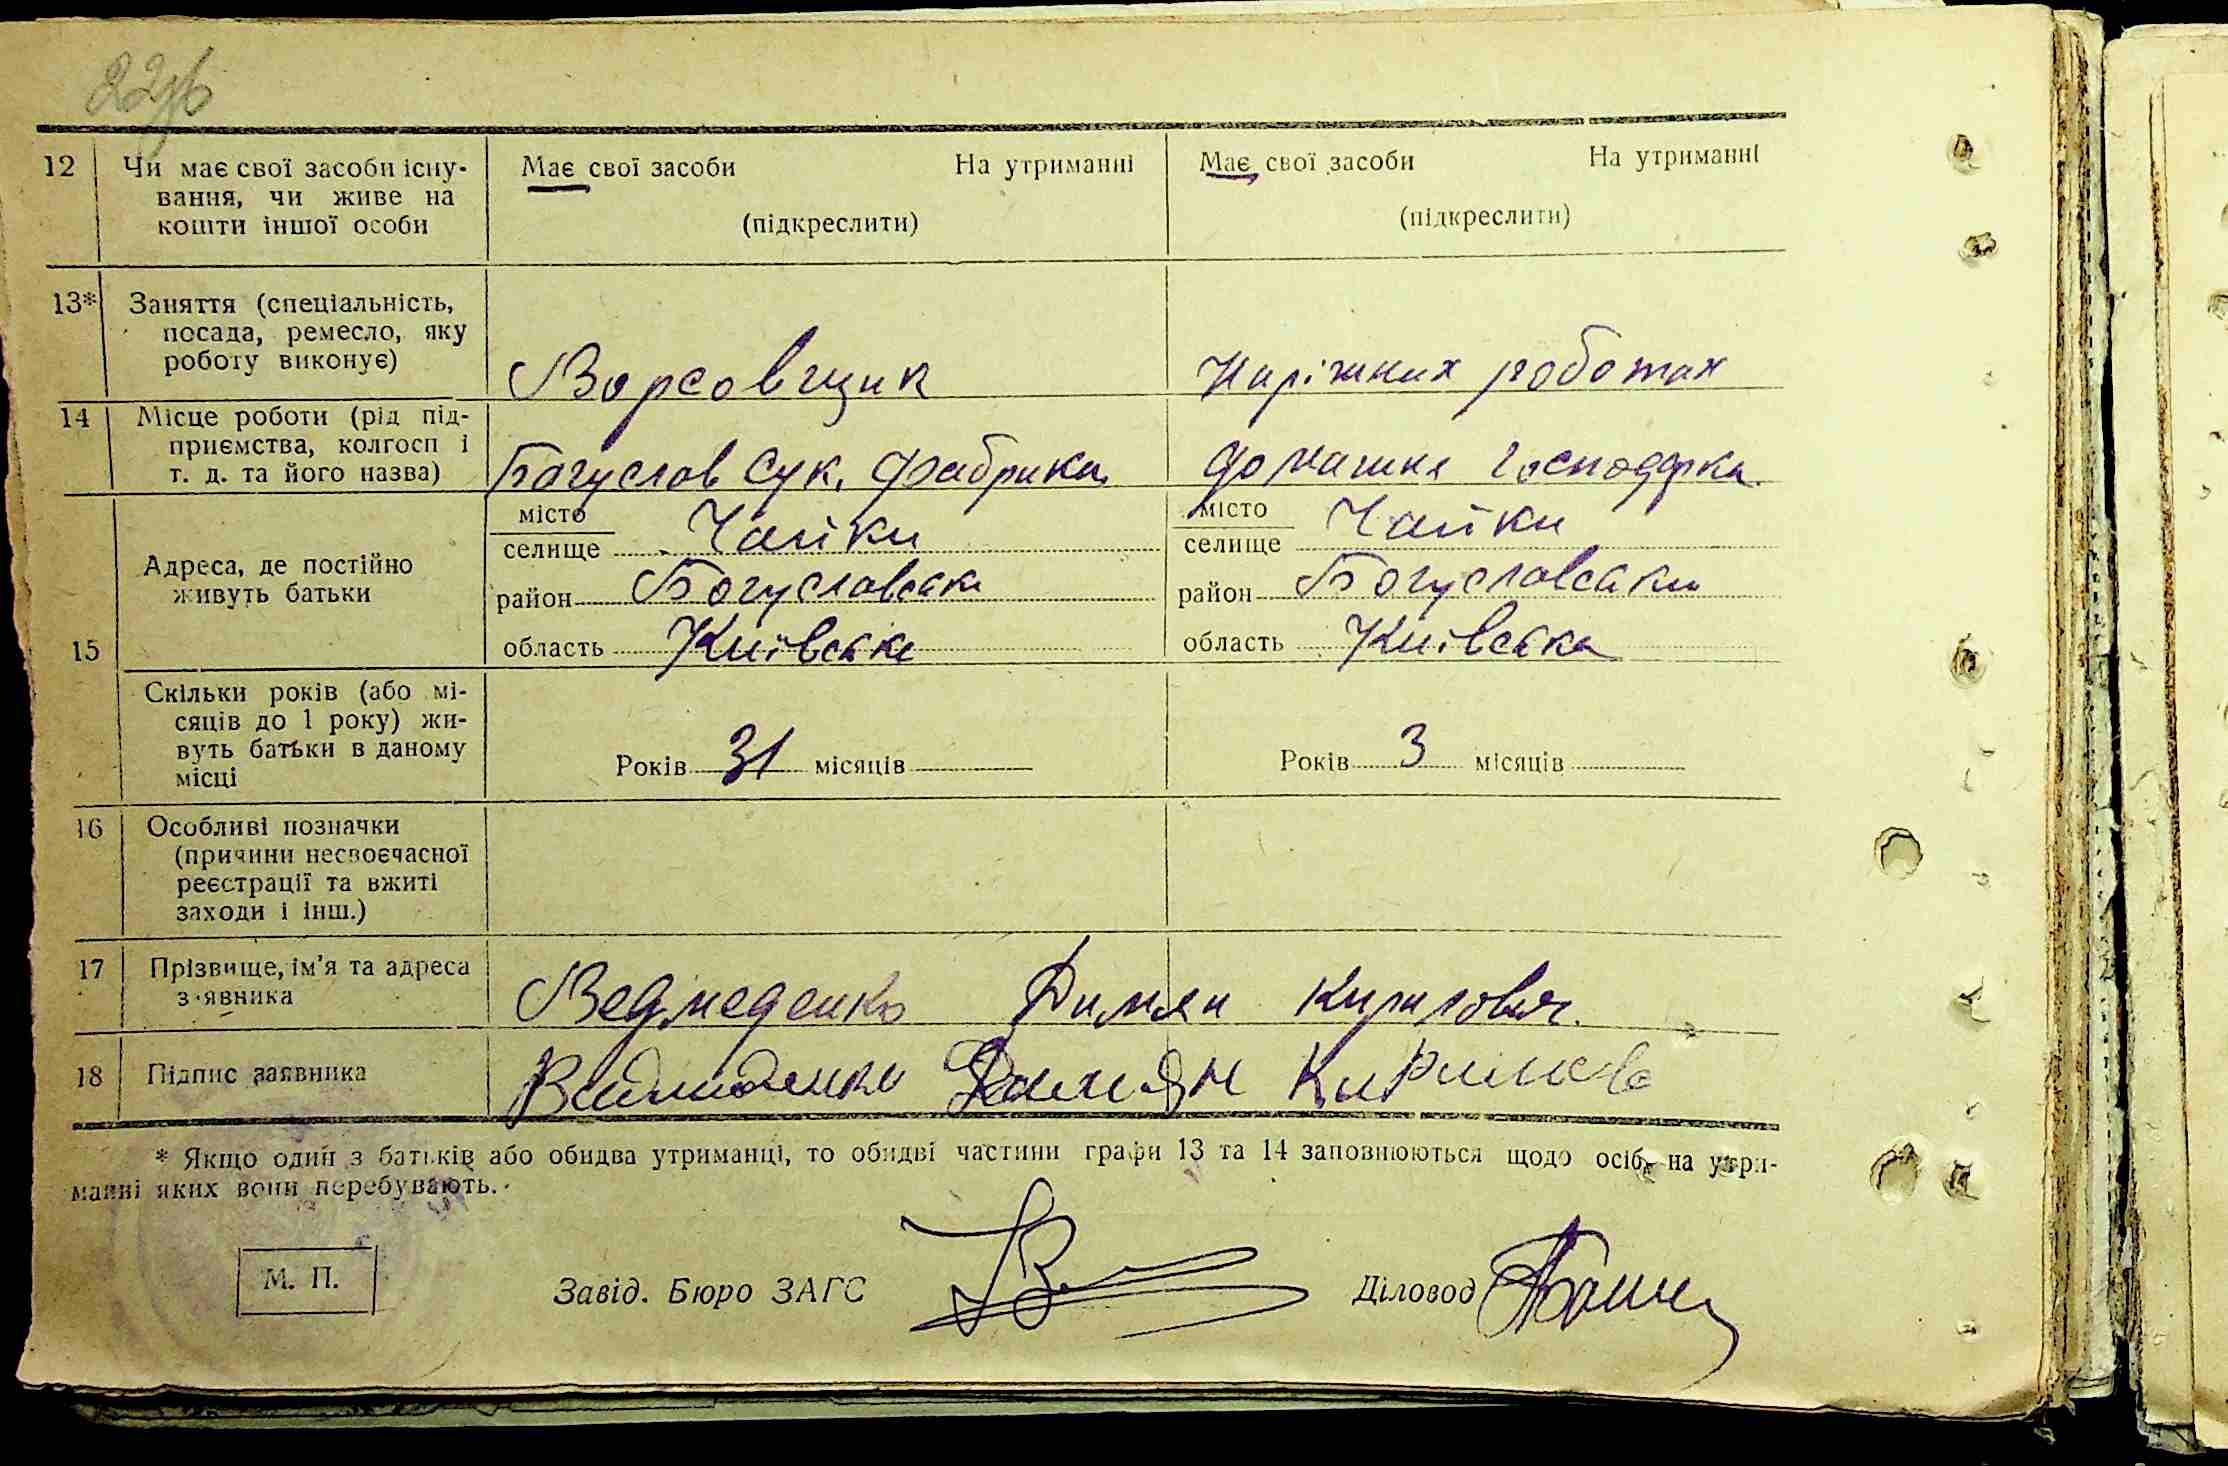 12 Чи має свої засоби існу-
вання, чи живе на
кошти іншої особи
Має свої засоби На утриманні
(підкреслити)
Має свої засоби На утриманні
(підкреслити)
13* Заняття (спеціальність,
посада, ремесло, яку
роботу виконує)
Ворсовщик
На ріжних роботах
14 Місце роботи (рід під-
приємства, колгосп і
т. д. та його назва)
Богуслав Сук. фабрика
домашня господарка
15 Адреса, де постійно
живуть батьки
місто
селище Чайки
район Богуславськи
область Київська
місто
селище Чайки
район Богуславськи
область Київська
Скільки років (або мі-
сяців до 1 року) жи-
вуть батьки в даному
місці
Років 31 місяців
Років 3 місяців
16 Особливі позначки
(причини несвоєчасної
реєстрації та вжиті
заходи і інш.)
17 Прізвище, ім'я та адреса
з'явника
Ведмеденко Димян Кирилович.
18 Підпис заявника
Видмиденко Дамиян Кирилов
* Якщо один з батьків або обидва утриманці, то обидві частини графи 13 та 14 заповнюються щодо осіб, на утри-
манні яких вони перебувають.
М. П.
Завід. Бюро ЗАГС
Діловод